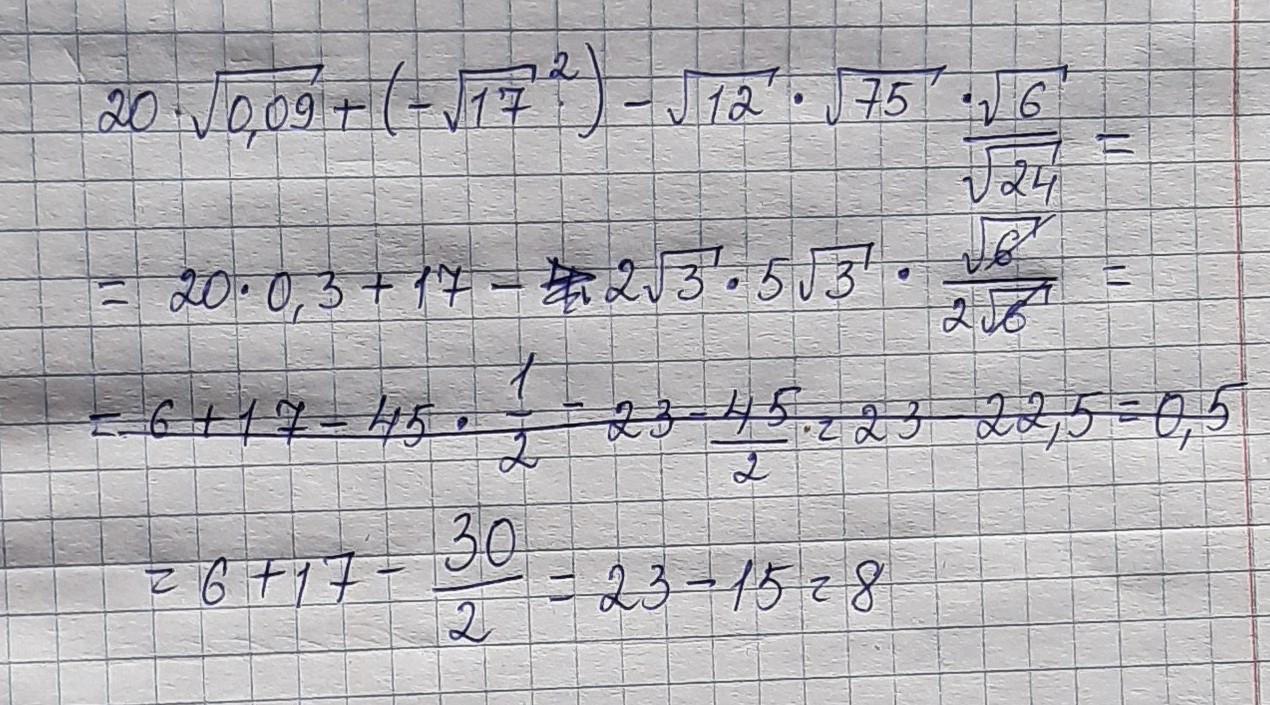 20·√0,09 + (-√17²) - √12 · √75 · √6/√24 =
= 20·0,3 + 17 - 2√3 · 5√3 · √6/2√6 =
= 6 + 17 - 45 · 1/2 = 23 - 45/2 = 23 - 22,5 = 0,5
= 6 + 17 - 30/2 = 23 - 15 = 8